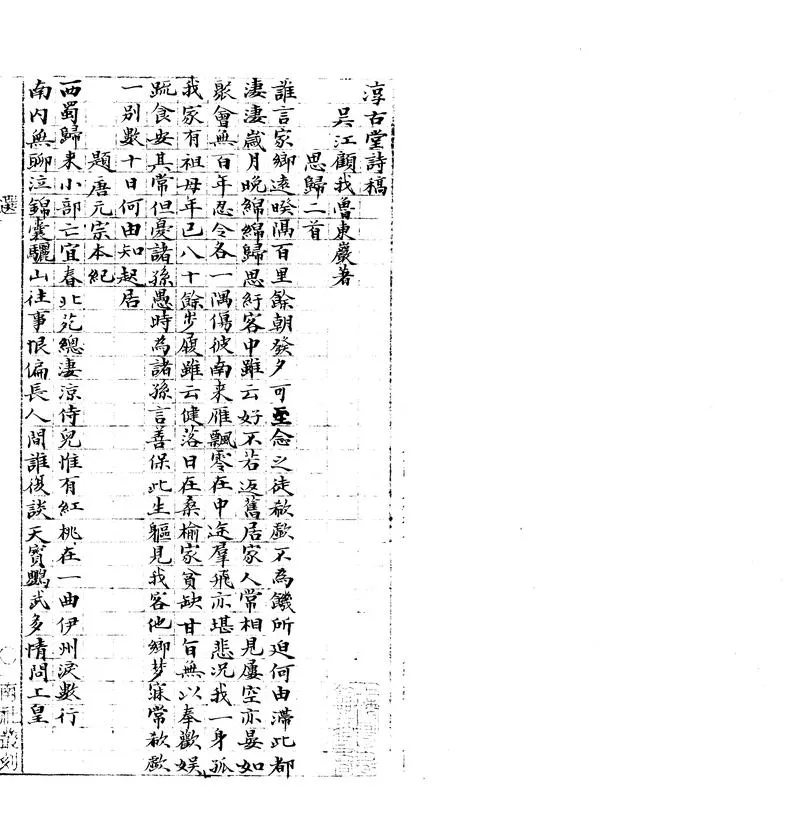 淳古堂詩稿
吳江顧我魯東巖著
思歸二首
誰言家鄉遠暌隔百里餘朝發夕可至念之徒欷歔不為饑所迫何由滯此都
淒淒歲月晚綿綿歸思紆客中雖云好不若返舊居家人常相見屢空亦晏如
聚會無百年忍令各一隅傷彼南來雁飄零在中途羣飛亦堪悲況我一身孤
我家有祖母年已八十餘步履雖云健落日在桑榆家貧缺甘旨無以奉歡娛
疏食安其常但憂諸孫愚時為諸孫言善保此生軀見我客他鄉夢寐常欷歔
一別數十日何由知起居
題唐元宗本紀
西蜀歸來小部亡宜春北苑總淒涼侍兒惟有紅桃在一曲伊州淚數行
南內無聊泣錦囊驪山往事恨偏長人間誰復談天寶鸚武多情問上皇
選
南社叢刻